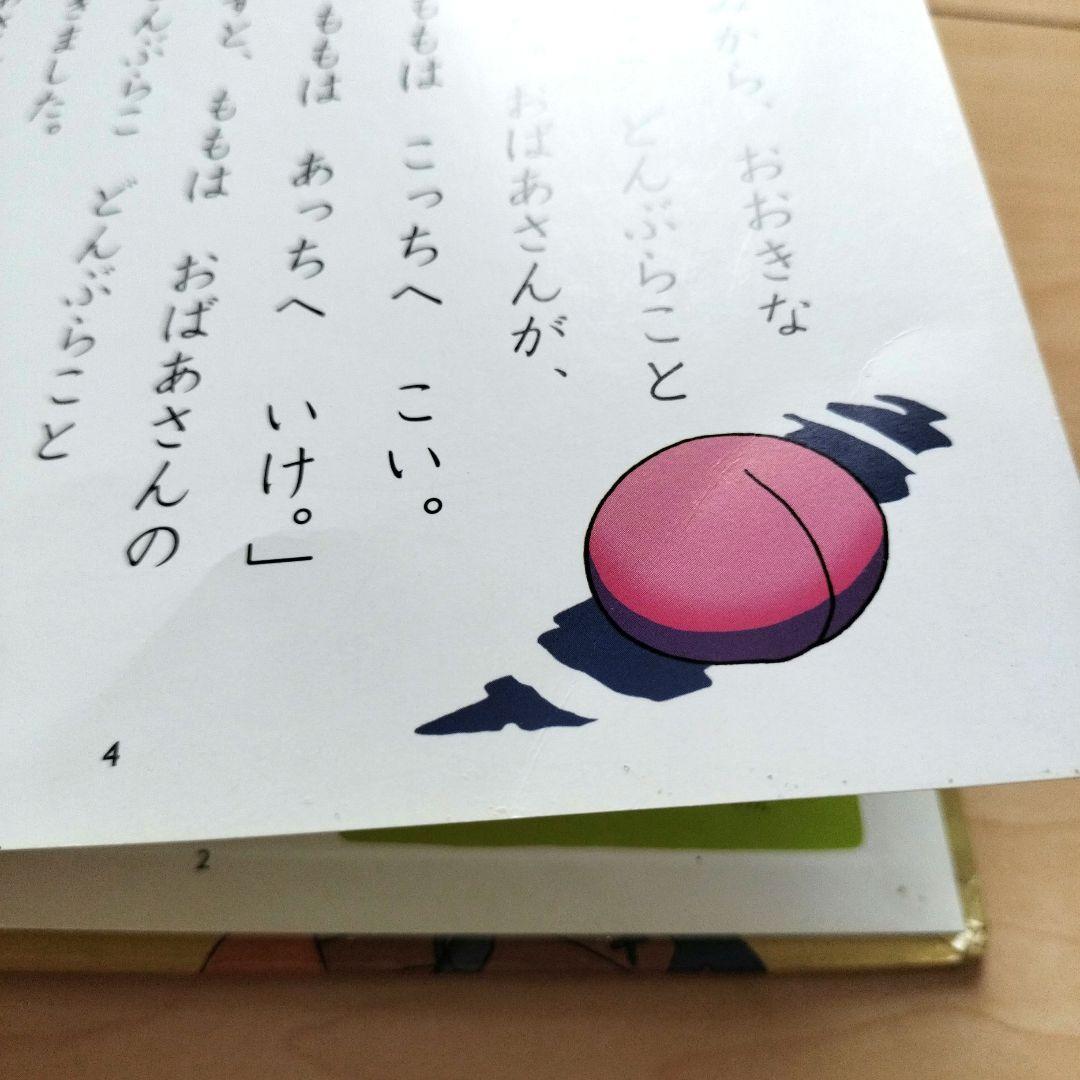 から、 おおきな
どんぶらこと
おばあさんが、
ももは こっちへ こい。
ももは あっちへ いけ。」
と、 ももは おばあさんの
んぶらこ どんぶらこと
きました。
4
2